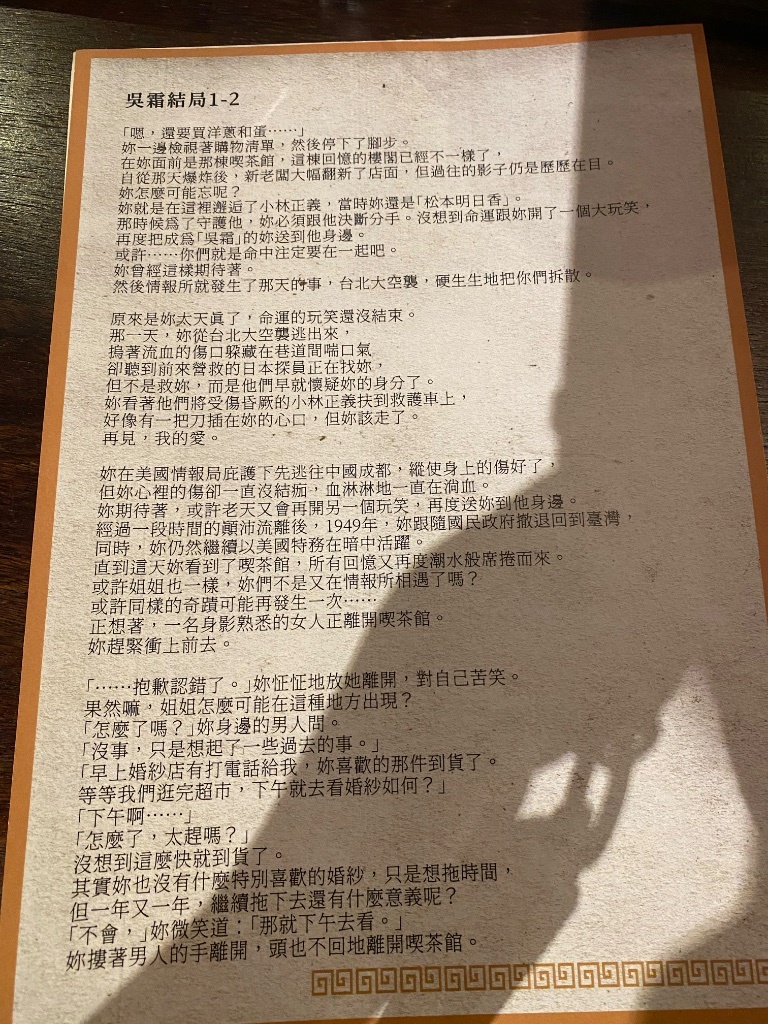 吳霜結局1-2
「嗯，還要買洋蔥和蛋……」
妳一邊檢視著購物清單，然後停下了腳步。
在妳面前是那棟喫茶館，這棟回憶的樓閣已經不一樣了，
自從那天爆炸後，新老闆大幅翻新了店面，但過往的影子仍是歷歷在目。
妳怎麼可能忘呢？
妳就是在這裡邂逅了小林正義，當時妳還是「松本明日香」。
那時候為了守護他，妳必須跟他決斷分手。沒想到命運跟妳開了一個大玩笑，
再度把成為「吳霜」的妳送到他身邊。
或許……你們就是命中注定要在一起吧。
妳曾經這樣期待著。
然後情報所就發生了那天的事，台北大空襲，硬生生地把你們拆散。
原來是妳太天真了，命運的玩笑還沒結束。
那一天，妳從台北大空襲逃出來，
摀著流血的傷口躲藏在巷道間喘口氣
卻聽到前來營救的日本探員正在找妳，
但不是救妳，而是他們早就懷疑妳的身分了。
妳看著他們將受傷昏厥的小林正義扶到救護車上，
好像有一把刀插在妳的心口，但妳該走了。
再見，我的愛。
妳在美國情報局庇護下先逃往中國成都，縱使身上的傷好了，
但妳心裡的傷卻一直沒結痂，血淋淋地一直在淌血。
妳期待著，或許老天又會再開另一個玩笑，再度送妳到他身邊。
經過一段時間的顛沛流離後，1949年，妳跟隨國民政府撤退回到臺灣，
同時，妳仍然繼續以美國特務在暗中活躍。
直到這天妳看到了喫茶館，所有回憶又再度潮水般席捲而來。
或許姐姐也一樣，妳們不是又在情報所相遇了嗎？
或許同樣的奇蹟可能再發生一次……
正想著，一名身影熟悉的女人正離開喫茶館。
妳趕緊衝上前去。
「……抱歉認錯了。」妳怔怔地放她離開，對自己苦笑。
果然嘛，姐姐怎麼可能在這種地方出現？
「怎麼了嗎？」妳身邊的男人問。
「沒事，只是想起了一些過去的事。」
「早上婚紗店有打電話給我，妳喜歡的那件到貨了。
等等我們逛完超市，下午就去看婚紗如何？」
「下午啊……」
「怎麼了，太趕嗎？」
沒想到這麼快就到貨了。
其實妳也沒有什麼特別喜歡的婚紗，只是想拖時間，
但一年又一年，繼續拖下去還有什麼意義呢？
「不會，」妳微笑道：「那就下午去看。」
妳摟著男人的手離開，頭也不回地離開喫茶館。